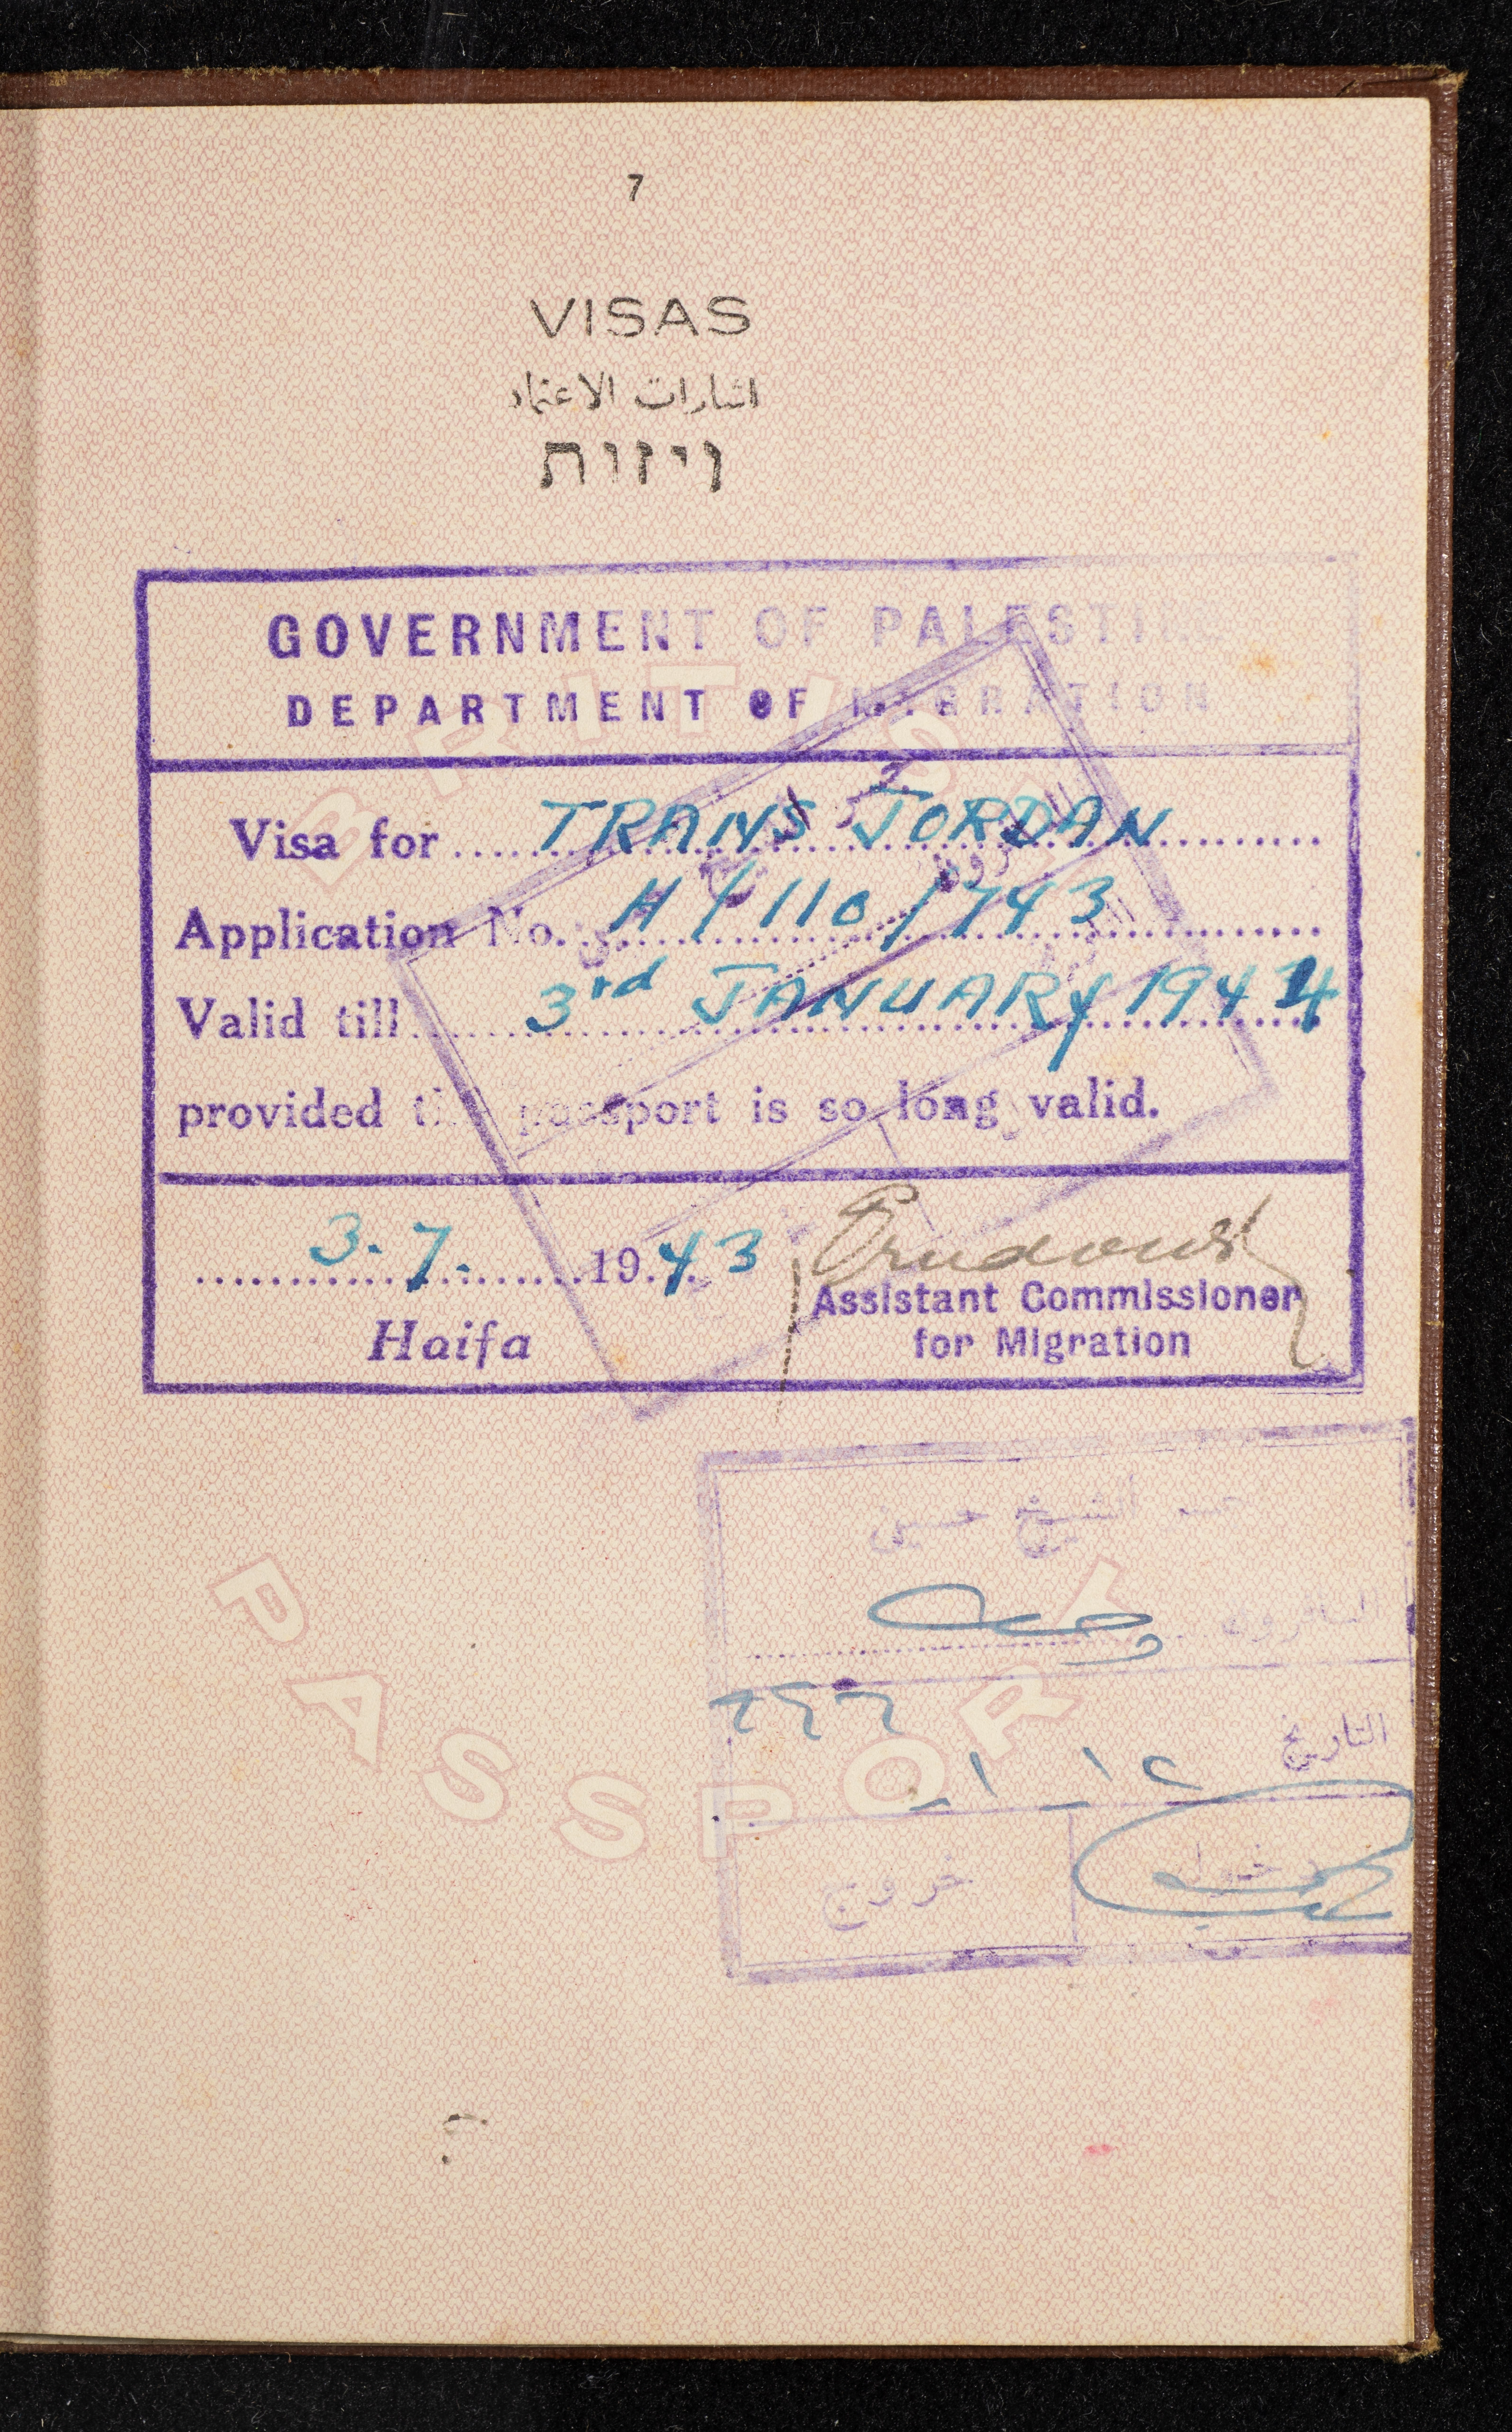 7
VISAS
اشارات الاعتماد
ויזות
GOVERNMENT OF PALESTI
DEPARTMENT OF MIGRATION
BRITISH
Visa for TRANS JORDAN
Application No. H/110/743
Valid till 3rd JANUARY 1944
provided the passport is so long valid.
3.7. 1943
Haifa
Assistant Commissioner
for Migration
الشيخ حسين
التاريخ
دخول
خروج
PASSPORT